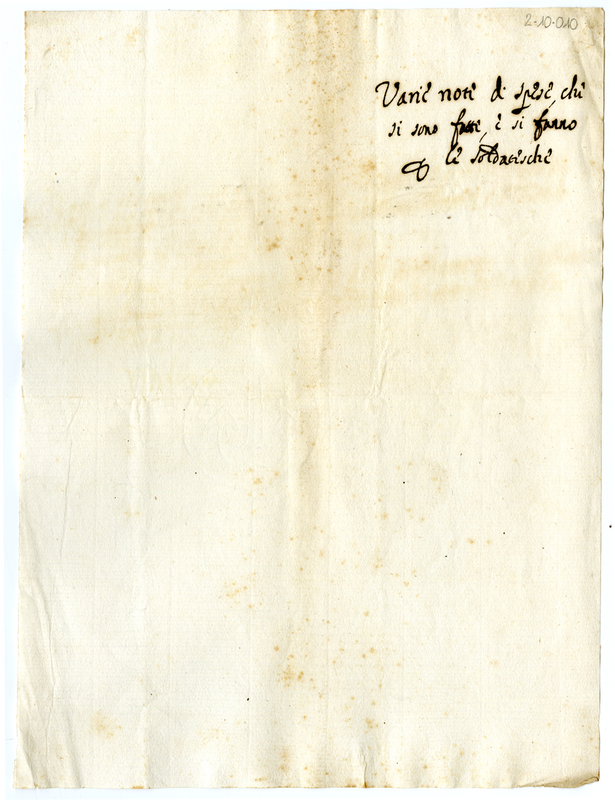 2-10-010
Varie note di spese, che
si sono fatte, e si fanno
le soldatesche